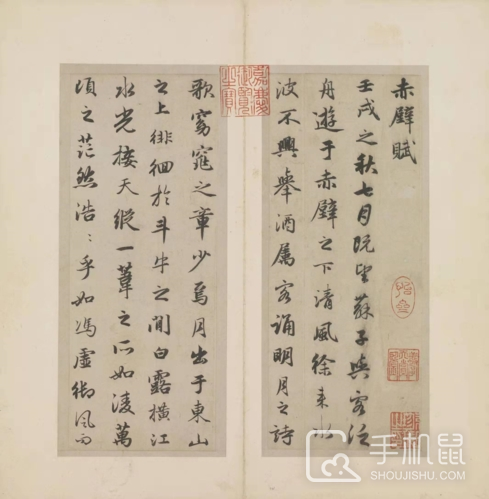 赤壁賦
壬戌之秋七月既望蘇子與客泛
舟遊于赤壁之下清風徐来水
波不興舉酒属客誦明月之詩
歌窈窕之章少焉月出于東山
之上徘徊於斗牛之間白露横江
水光接天縱一葦之所如凌萬
頃之茫然浩〻乎如馮虚御風而
手机鼠
SHOUJISHU.COM